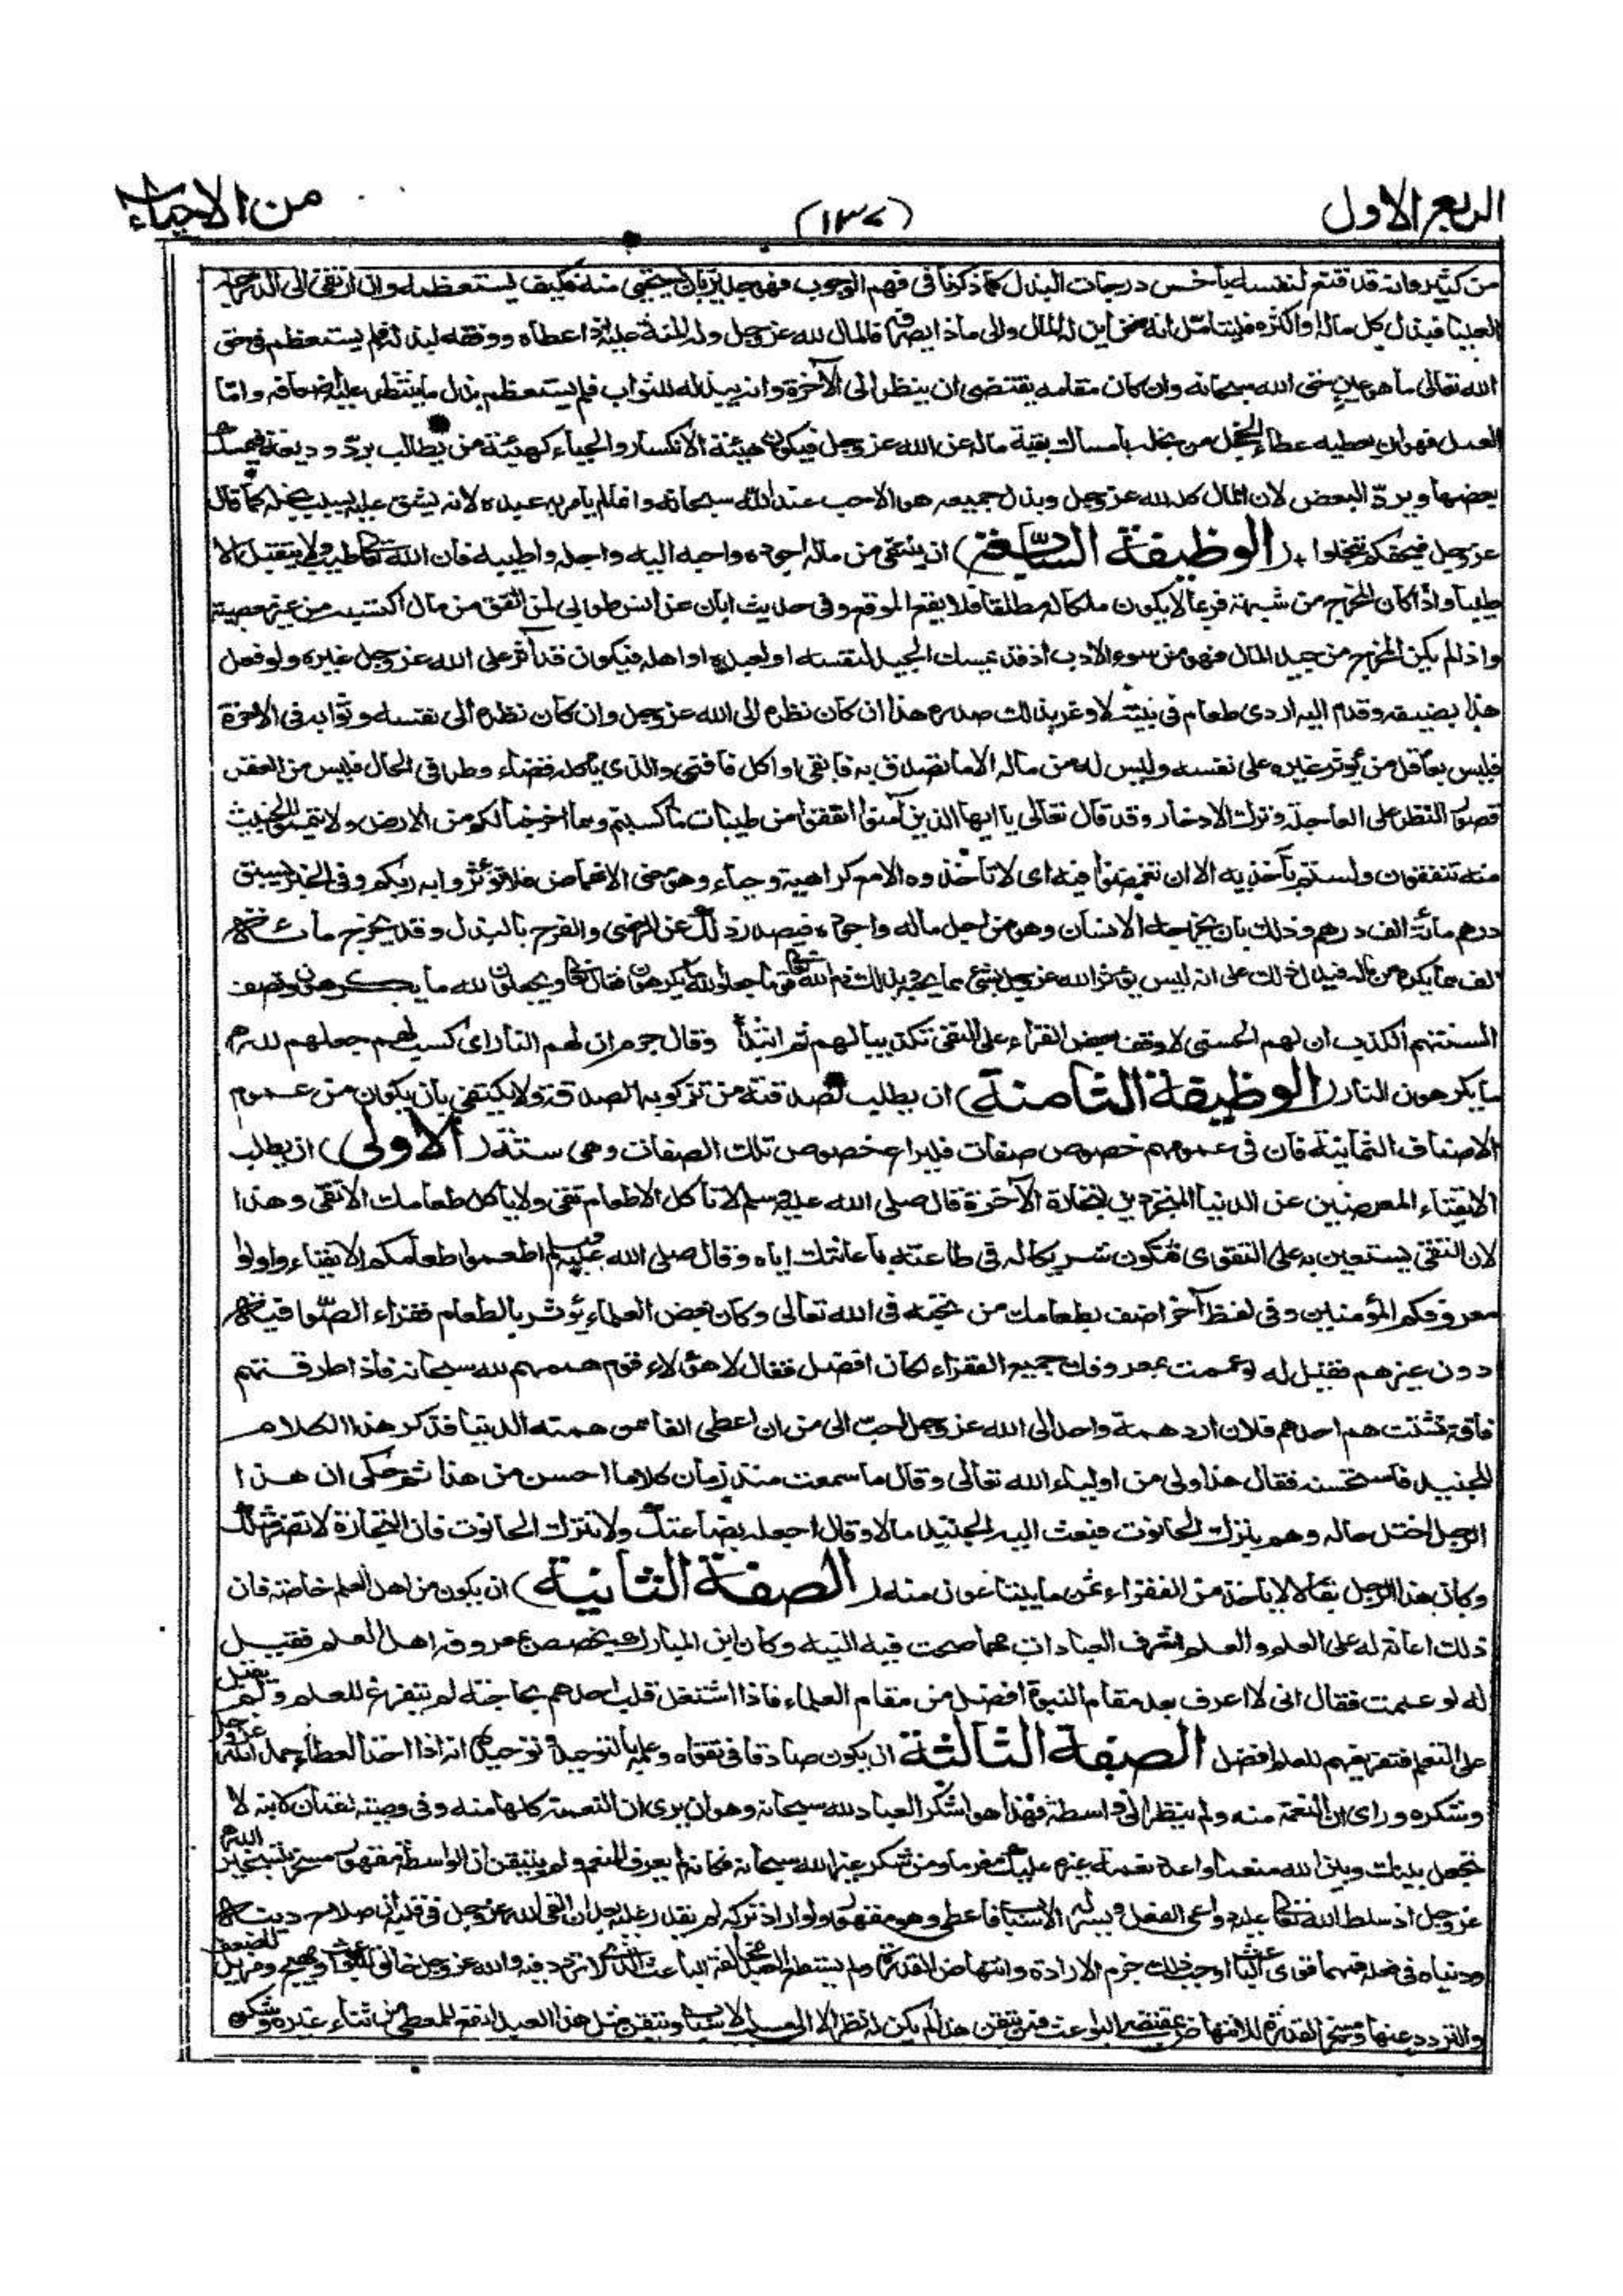 الربع الاول
(١٣٧)
من الاحياء
من كثير وانه قد قنع لنفسه باخس درجات البذل كما ذكرنا فى فهم الوجوب فهو جدير بان يستحيى منه فكيف يستعظمه وان ارتقى الى الدرجة
العليا فبذل كل ماله او اكثره فليتامل انه من اين له المال والى ماذا يصرفه فالمال لله عز وجل وله المنة عليه اذ اعطاه ووفقه لبذله فلم يستعظم فى حق
الله تعالى ما هو عين حق الله سبحانه وان كان مقامه يقتضى ان ينظر الى الآخرة وانه يبذله للثواب فلم يستعظم بذل ما ينتظر عليه اضعافه واما
العمل فهو ان يعطيه عطاء الخجل من بخله بامساك بقية ماله عن الله عز وجل فيكون هيئته الانكسار والحياء كهيئة من يطالب برد وديعة فيمسك
بعضها ويرد البعض لان المال كله لله عز وجل وبذل جميعه هو الاحب عند الله سبحانه وانما لم يامر به عبده لانه يشق عليه بسبب بخله كما قال
عز وجل فيحفكم تبخلوا (الوظيفة السابعة) ان ينتقى من ماله اجوده واحبه اليه واجله واطيبه فان الله تعالى طيب ولا يتقبل الا
طيبا واذا كان المخرج من شبهة فربما لا يكون ملكا له مطلقا فلا يقع الموقع وفى حديث ابان عن انس طوبى لمن انفق من مال اكتسبه من غير معصية
واذا لم يكن المخرج من جيد المال فهو من سوء الادب اذ قد يمسك الجيد لنفسه او لعبده او اهله فيكون قد آثر على الله عز وجل غيره ولو فعل
هذا بضيفه وقدم اليه اردى طعام فى بيته لاوغر بذلك صدره هذا ان كان نظره الى الله عز وجل وان كان نظره الى نفسه وثوابه فى الآخرة
فليس بعاقل من يؤثر غيره على نفسه وليس له من ماله الا ما تصدق به فابقى او اكل فافنى والذى ياكله قضاء وطر فى الحال فليس من العقل
قصور النظر على العاجلة وترك الادخار وقد قال تعالى يا ايها الذين آمنوا انفقوا من طيبات ما كسبتم ومما اخرجنا لكم من الارض ولا تيمموا الخبيث
منه تنفقون ولستم بآخذيه الا ان تغمضوا فيه اى لا تأخذوه الا مع كراهية وحياء وهو معنى الاغماض فلا تؤثروا به ربكم وفى الخبر سبق
درهم مائة الف درهم وذلك بان يخرجه الانسان وهو من احل ماله واجوده فيصدر ذلك عن الرضى والفرح بالبذل وقد يخرج مائة
الف مما يكره من ماله فيدل ذلك على انه ليس يؤثر الله عز وجل بشئ مما يحبه بذلك ذم الله تعالى قوما جعلوا لله ما يكرهون فقال تعالى ويجعلون لله ما يكرهون وتصف
السنتهم الكذب ان لهم الحسنى لا وقف بعض القراء على النفى تكذيبا لهم ثم ابتدأ وقال جرم ان لهم النار اى كسب لهم جعلهم لله
ما يكرهون النار (الوظيفة الثامنة) ان يطلب لصدقته من تزكو به الصدقة ولا يكتفى بان يكون من عموم
الاصناف الثمانية فان فى عمومهم خصوص صفات فليراع خصوص تلك الصفات وهى ستة (الاولى) ان يطلب
الاتقياء المعرضين عن الدنيا المتجردين لتجارة الآخرة قال صلى الله عليه وسلم لا تاكل الا طعام تقى ولا ياكل طعامك الا تقى وهذا
لان التقى يستعين به على التقوى فتكون شريكا له فى طاعته باعانتك اياه وقال صلى الله عليه وسلم اطعموا طعامكم الاتقياء واولوا
معروفكم المؤمنين وفى لفظ آخر اضف بطعامك من تحبه فى الله تعالى وكان بعض العلماء يؤثر بالطعام فقراء الصوفية
دون غيرهم فقيل له لو عممت بمعروفك جميع الفقراء لكان افضل فقال لا هؤلاء قوم هممهم لله سبحانه فاذا اطرقتهم
فاقة تشتت هم احدهم فلان ارد همة واحد الى الله عز وجل احب الى من ان اعطى الفا ممن همته الدنيا فذكر هذا الكلام
للجنيد فاستحسنه فقال هذا ولى من اولياء الله تعالى وقال ما سمعت منذ زمان كلاما احسن من هذا ثم حكى ان هذا
الرجل اختل حاله وهم بترك الحانوت فبعث اليه الجنيد مالا وقال اجعله بضاعتك ولا تترك الحانوت فان التجارة لا تضر مثلك
وكان هذا الرجل بقالا لا ياخذ من الفقراء ثمن ما يبتاعون منه (الصفة الثانية) ان يكون من اهل العلم خاصة فان
ذلك اعانة له على العلم والعلم اشرف العبادات مهما صحت فيه النية وكان ابن المبارك يخصص بمعروفه اهل العلم فقيل
له لو عممت فقال انى لا اعرف بعد مقام النبوة افضل من مقام العلماء فاذا اشتغل قلب احدهم بحاجته لم يتفرغ للعلم ولم يقبل
على التعلم فتفريغهم للعلم افضل الصفة الثالثة ان يكون صادقا فى تقواه وعلمه بالتوحيد وتوحيده انه اذا اخذ العطاء حمد الله عز وجل
وشكره وراى ان النعمة منه ولم ينظر الى واسطة فهذا هو اشكر العباد لله سبحانه وهو ان يرى ان النعمة كلها منه وفى وصية لقمان لابنه لا
تجعل بينك وبين الله منعما واعدد نعمة غيره عليك مغرما ومن شكر غير الله سبحانه فكانه لم يعرف المنعم ولم يتيقن ان الواسطة مقهور مسخر بتسخير الله
عز وجل اذ سلط الله تعالى عليه دواعى الفعل ويسر له الاسباب فاعطى وهو مقهور ولو اراد تركه لم يقدر عليه بعد ان القى الله عز وجل فى قلبه ان صلاح دينه
ودنياه فى فعله فمهما قوى الباعث اوجب ذلك جزم الارادة وانتهاض القدرة ولم يستطع العبد مخالفة الباعث القوى الذى لا تردد فيه والله عز وجل خالق للبواعث ومهيجها ومزيل للضعف
والتردد عنها ومسخر القدرة للانتهاض بمقتضى البواعث فمن تيقن هذا لم يكن له نظر الا الى مسبب الاسباب وتيقن مثل هذا العبد انفع للمعطى من ثناء غيره وشكره